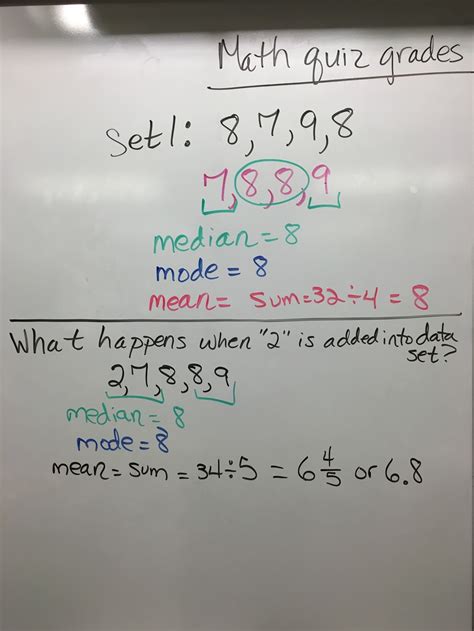 Math quiz grades
Set 1: 8,7,9,8
7,8,8,9
median = 8
mode = 8
mean = sum=32÷4 = 8
What happens when "2" is added into data
set?
2,7,8,8,9
median = 8
mode = 8
mean = sum = 34÷5 = 6 4/5 or 6.8